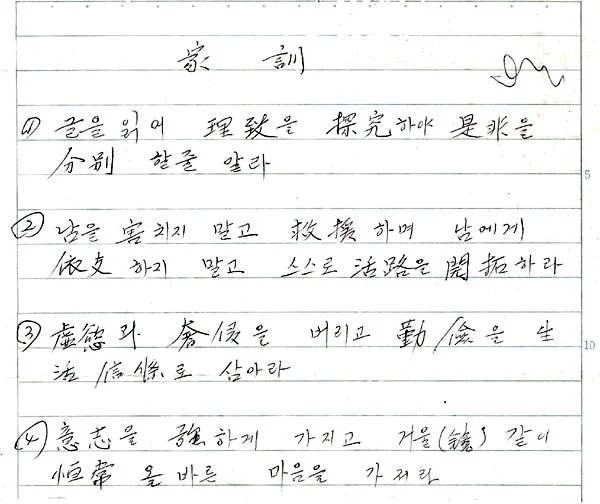 家 訓
① 글을 읽어 理致을 探究하야 是非을
分別 할줄 알라
② 남을 害치지 말고 救援하며 남에게
依支 하지 말고 스스로 活路을 開拓하라
③ 虛慾과 奢侈을 버리고 勤儉을 生
活信條로 삼아라
④ 意志을 强하게 가지고 거울(鏡) 같이
恒常 올바른 마음을 가져라
5
10